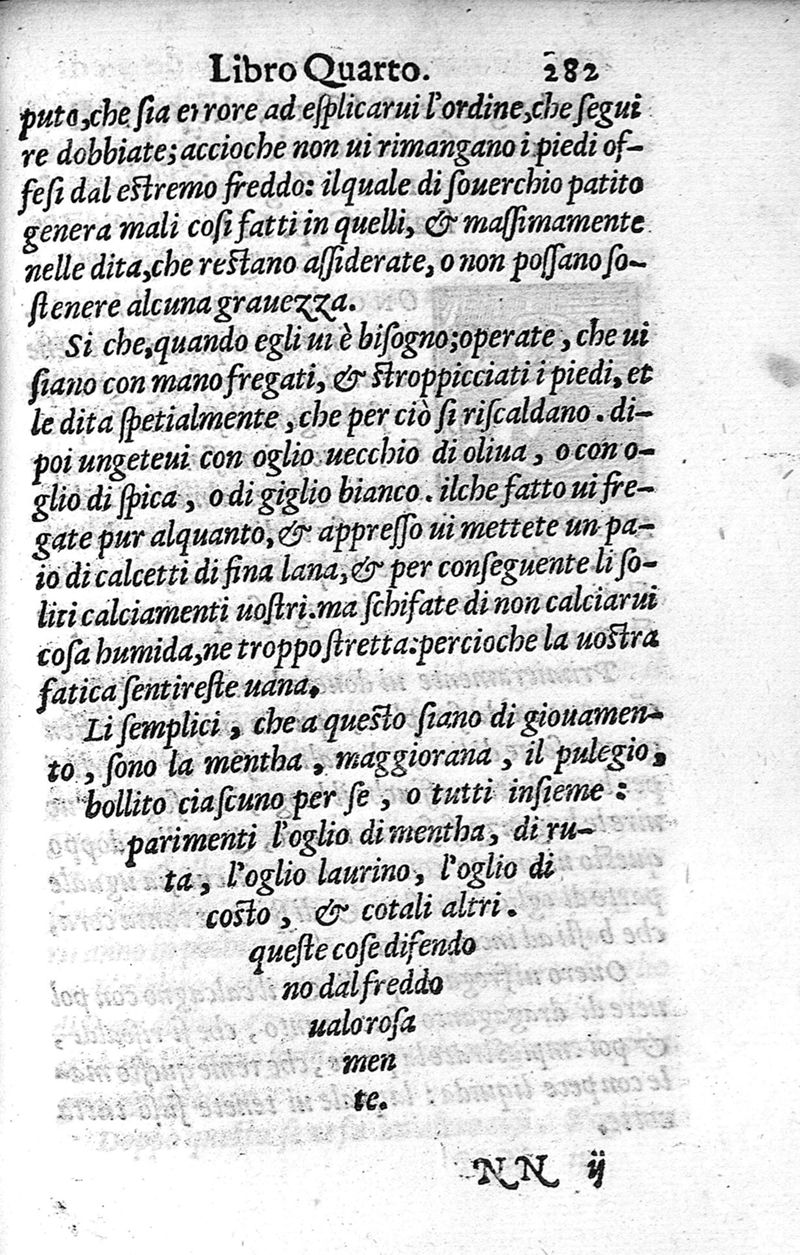 Libro Quarto. 282
puto, che ſia errore ad eſplicarui l'ordine, che ſegui
re dobbiate; accioche non ui rimangano i piedi of-
feſi dal eſtremo freddo: ilquale di ſouerchio patito
genera mali coſi fatti in quelli, & maſſimamente
nelle dita, che reſtano aſſiderate, o non poſſano ſo-
ſtenere alcuna grauezza.
Si che, quando egli ui è biſogno; operate, che ui
ſiano con mano fregati, & ſtroppicciati i piedi, et
le dita ſpetialmente, che per ciò ſi riſcaldano. di-
poi ungeteui con oglio uecchio di oliua, o con o-
glio di ſpica, o di giglio bianco. ilche fatto ui fre-
gate pur alquanto, & appreſſo ui mettete un pa-
io di calcetti di fina lana, & per conſeguente li ſo-
liti calciamenti uoſtri. ma ſchifate di non calciarui
coſa humida, ne troppo ſtretta: percioche la uoſtra
fatica ſentireſte uana.
Li ſemplici, che a queſto ſiano di giouamen-
to, ſono la mentha, maggiorana, il pulegio,
bollito ciaſcuno per ſe, o tutti inſieme:
parimenti l'oglio di mentha, di ru-
ta, l'oglio laurino, l'oglio di
coſto, & cotali altri.
queſte coſe difendo
no dal freddo
ualoroſa
men
te.
NN ij